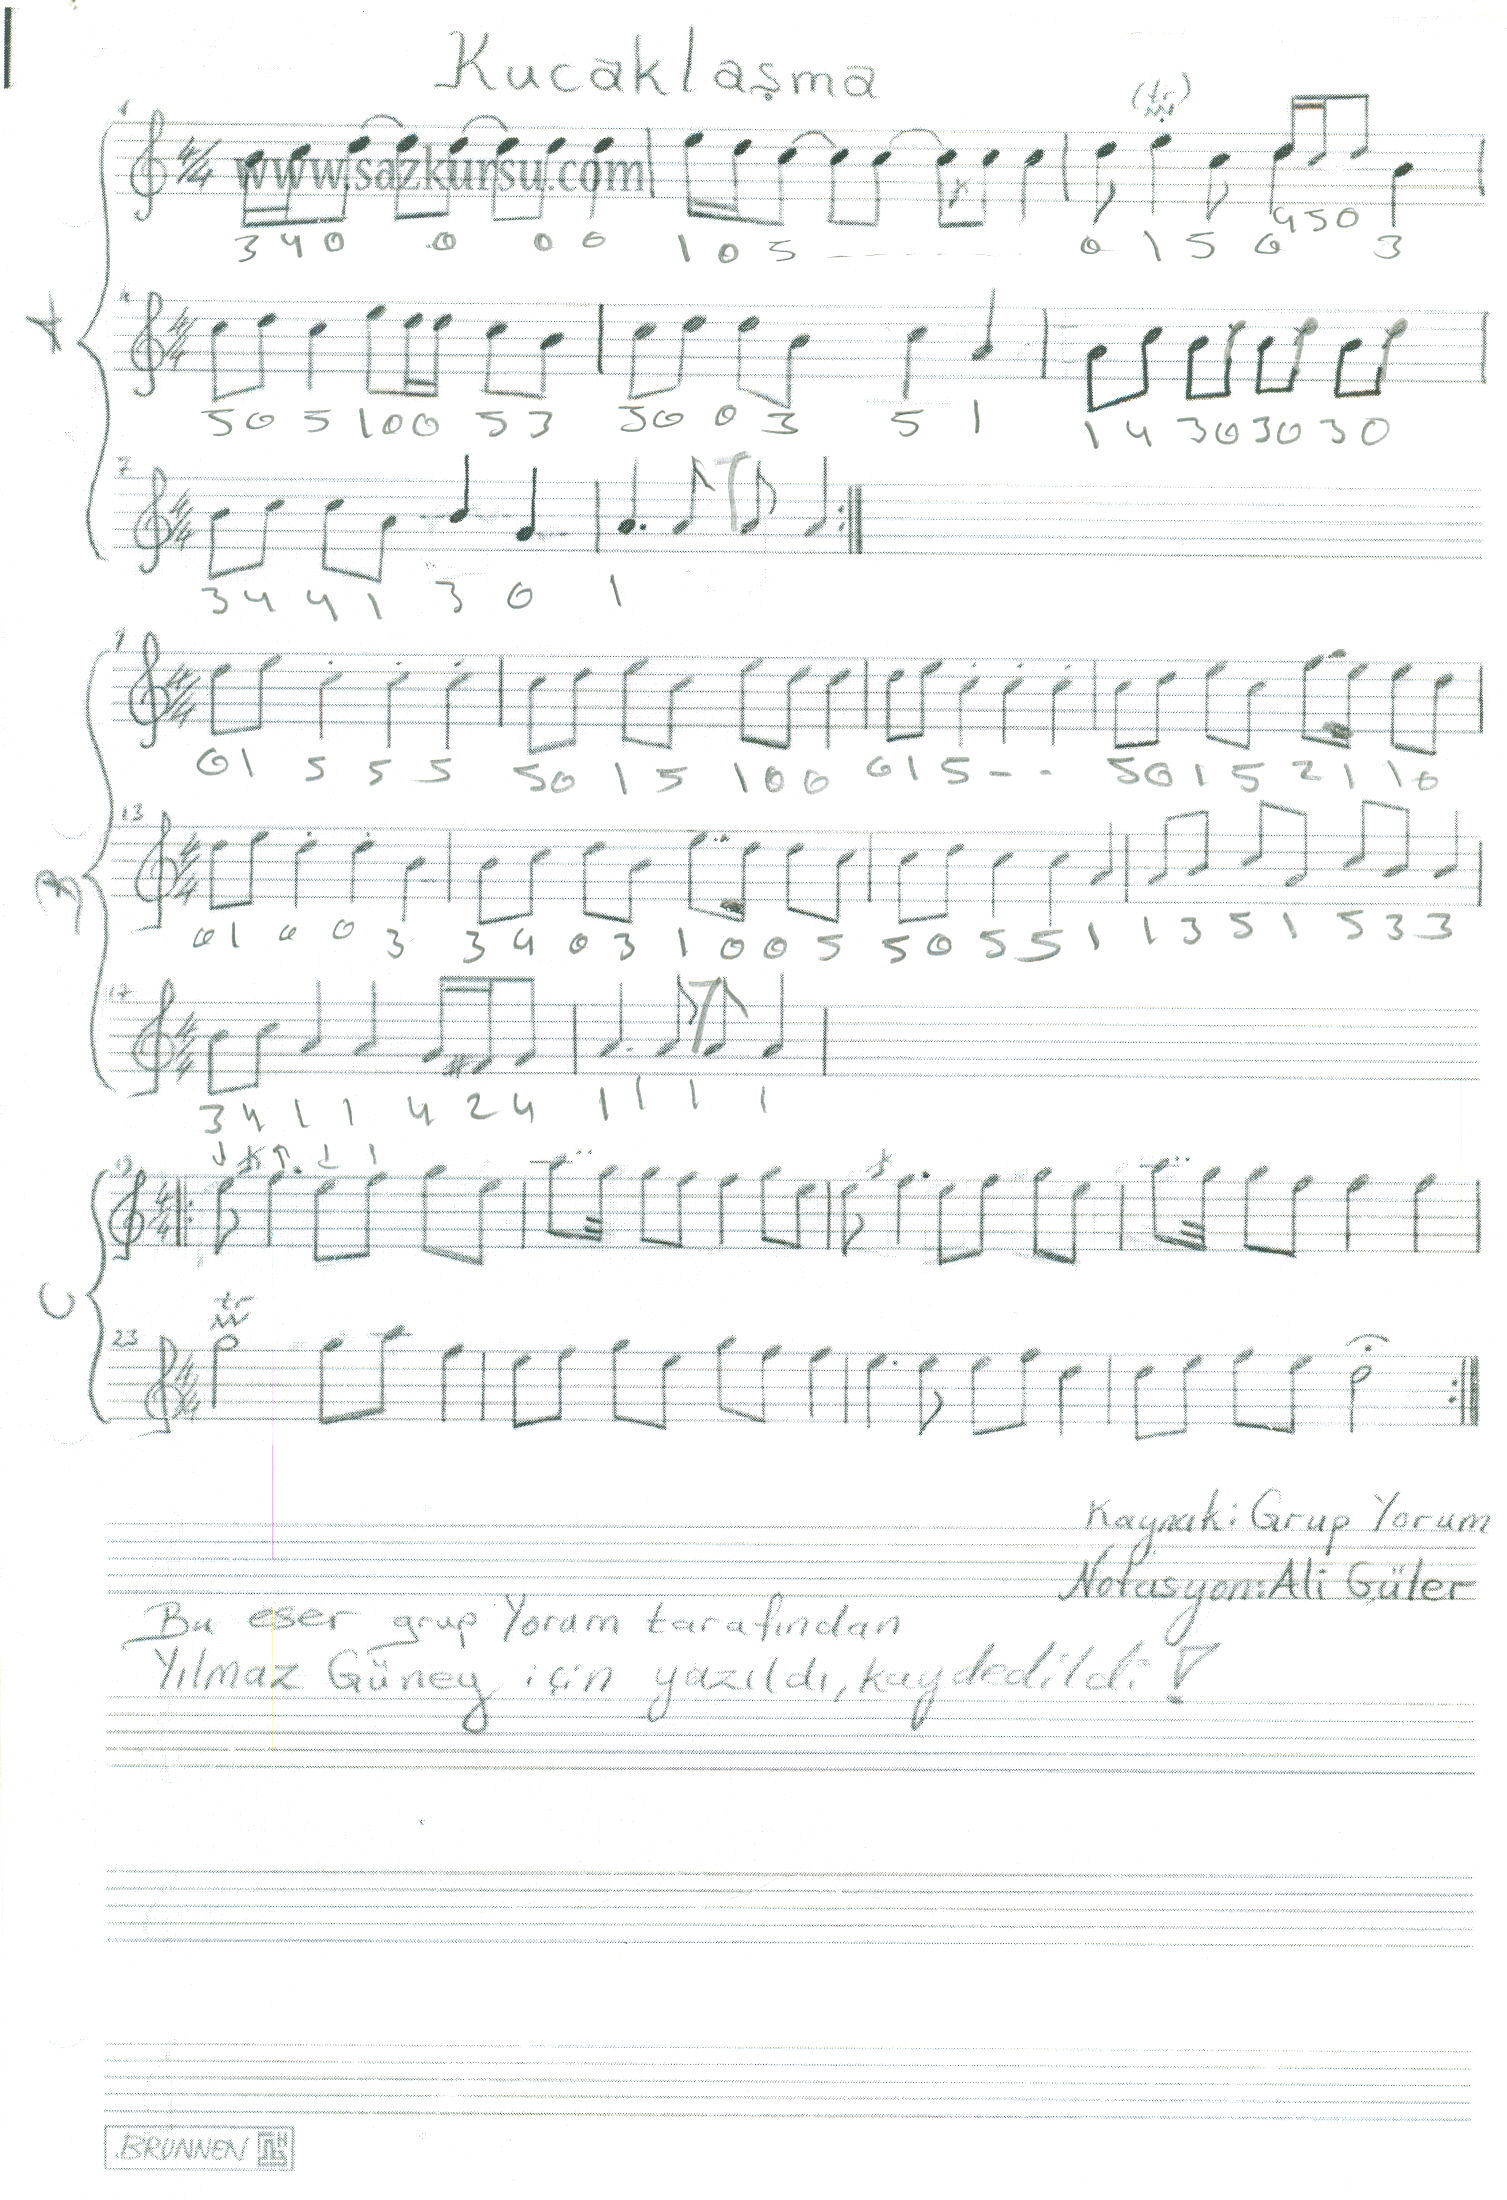 Kucaklaşma
www.sazkursu.com
(tr)
3 4 0 0 0 0 0 1 0 5 0 1 5 0 4 5 0 3
A
5 0 5 1 0 0 5 3 5 0 0 3 5 1 1 4 3 0 3 0 3 0
7
3 4 4 1 3 0 1
0 1 5 5 5 5 0 1 5 1 0 0 0 1 5 - - 5 0 1 5 2 1 1 0
13
B
0 1 0 0 3 3 4 0 3 1 0 0 5 5 0 5 5 1 1 3 5 1 5 3 3
17
3 4 1 1 4 2 4 1 1 1 1
19
C
tr
23
Kaynak: Grup Yorum
Notasyon: Ali Güler
Bu eser grup Yorum tarafından
Yılmaz Güney için yazıldı, kaydedildi!
BRUNNEN